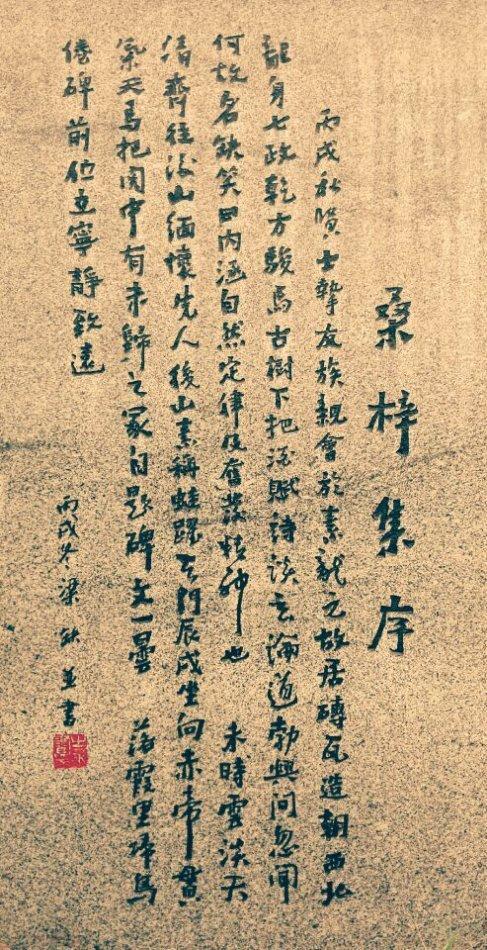 桑梓集序
丙戌秋士摯友族親會於素龍之故居磚瓦造朝西北
龍身七政乾方駿馬古樹下把酒賦詩談玄論道勃興间忽聞
何故名缺笑曰内涵自然定律及奮發精神也 未時雲淡天
清齊往後山緬懷先人後山素稱蛙躍玄門辰戌坐向赤帝貫
氣天馬把中有未歸之冢自題碑文一曇 落霞里歸鳥
倦碑前佇立寧靜致遠
丙戌冬梁缺並書